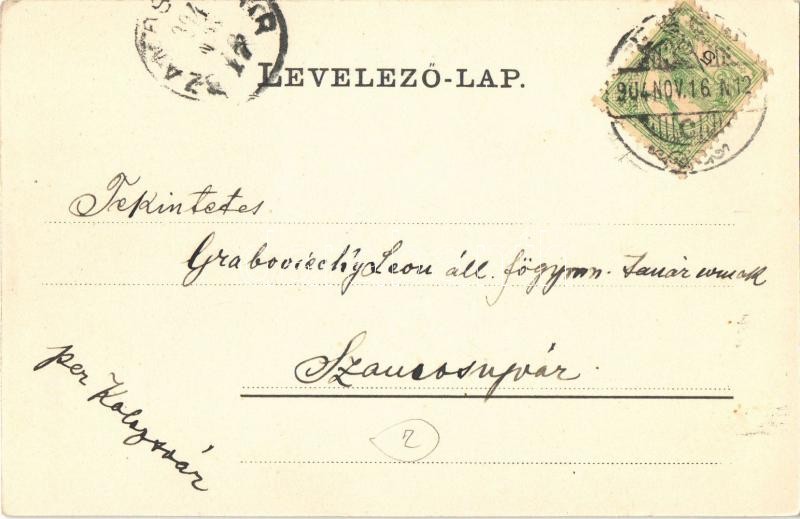 LEVELEZŐ-LAP.
904 NOV. 16 N 12
Tekintetes
Grabovieczky Leon áll. főgymn. tanár urnak
Szamosujvár
per Kolozsvár
2